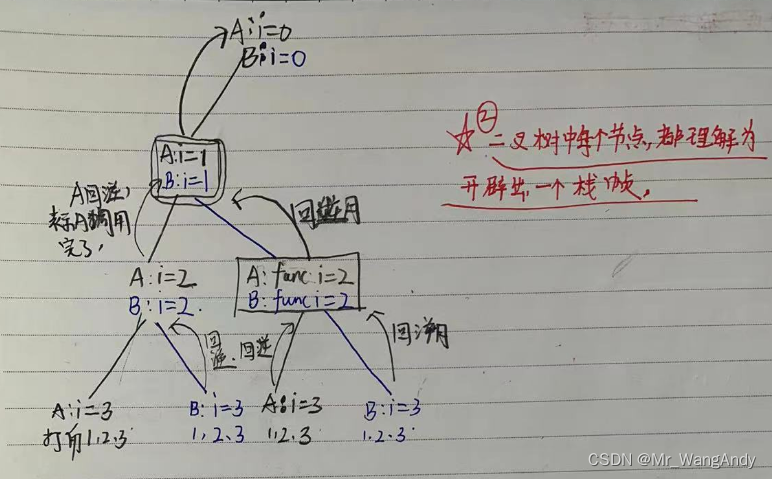 A: i=0
B: i=0
☆②二叉树中每个节点,都理解为
开辟出一个栈帧。
A:i=1
B:i=1
A回溯,
表示A调用
完了,
回溯
A:i=2
B:i=2.
A: func i=2
B: func i=2
回溯.
回溯
回溯
A:i=3
打印1,2,3
B:i=3
1,2,3
A:i=3
1,2,3
B:i=3
1,2,3
CSDN @Mr_WangAndy